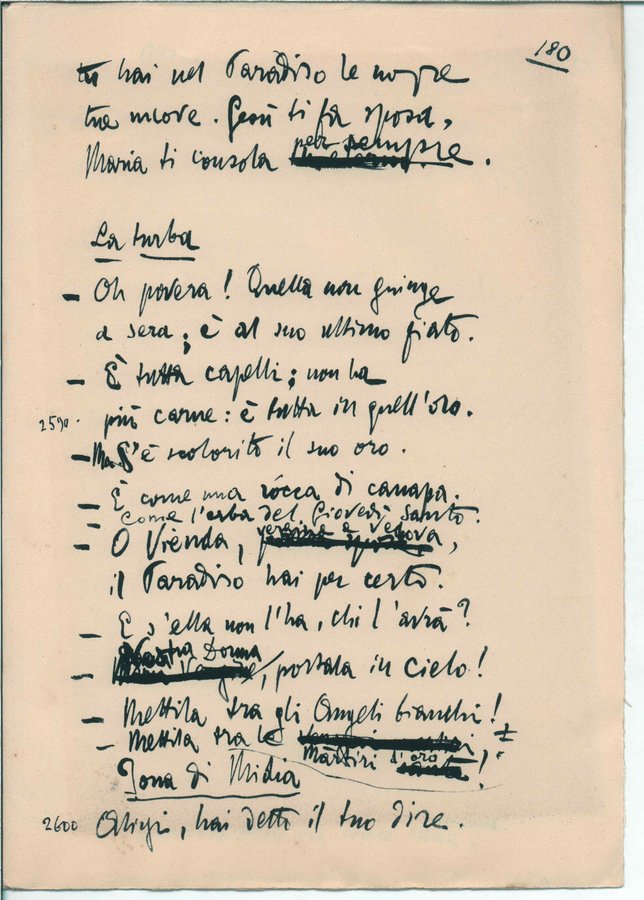 180
tu hai nel Paradiso le nozze
tue nuove. Gesù ti fa sposa,
Maria ti consola per sempre.
La turba
– Oh povera! Quella non giunge
a sera; è al suo ultimo fiato.
– È tutta capelli; non ha
2590. più carne: è tutta in quell'oro.
– Ma s'è scolorito il suo oro.
– È come una rócca di canapa.
– come l'erba del Giovedì santo.
– O Vienda, vergine e vedova,
il Paradiso hai per certo.
– E s'ella non l'ha, chi l'avrà?
– Nostra Donna, portala in cielo!
– Mettila tra gli Angeli bianchi!
– Mettila tra le
Martiri d'oro!
Iona di Midia
2600 Aligi, hai detto il tuo dire.